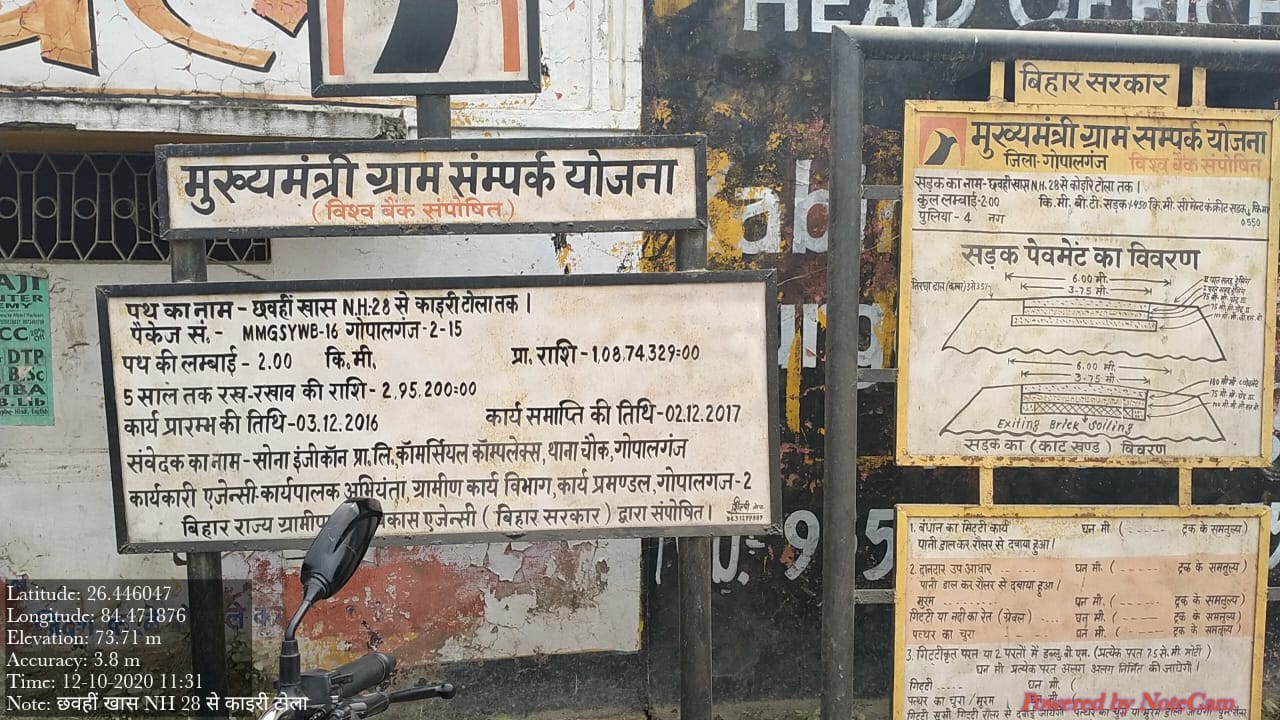 HEAD OFFICE
मुख्यमंत्री ग्राम संम्पर्क योजना
(विश्व बैंक संपोषित)
पथ का नाम - छवहीं खास N.H-28 से काइरी टोला तक।
पैकेज सं.- MMGSYWB-16 गोपालगंज-2-15
पथ की लम्बाई - 2.00 कि.मी. प्रा. राशि - 1,08,74,329=00
5 साल तक रख-रखाव की राशि - 2,95,200=00
कार्य प्रारम्भ की तिथि-03.12.2016 कार्य समाप्ति की तिथि-02.12.2017
संवेदक का नाम - सोना इंजीकॉन प्रा.लि., कॉमर्सियल कॉम्पलेक्स, थाना चौक, गोपालगंज
कार्यकारी एजेन्सी-कार्यपालक अभियंता, ग्रामीण कार्य विभाग, कार्य प्रमण्डल, गोपालगज-2
बिहार राज्य ग्रामीण कास एजेन्सी ( बिहार सरकार ) द्वारा संपोषित।
बिहार सरकार
मुख्यमंत्री ग्राम सम्पर्क योजना
जिला-गोपालगंज विश्व बैंक संपोषित
सड़क का नाम-छवहीं खास N.H. 28 से कोइरी टोला तक।
कुल लम्बाई-2.00 कि.मी. बी.टी. सड़क 1.450 कि.मी. सीमेन्ट कंक्रीट सड़क, कि.मी.
0.550
पुलिया - 4 नग
सड़क पेवमेंट का विवरण
6.00 मी.
3.75 मी.
6.00 मी.
3.75 मी.
Exiting Brick Soiling
सड़क का (काट खण्ड) विवरण
1. बंधान का मिट्टी कार्य घन मी. ( ----- ट्रक के समतुल्य )
पानी डालकर रोलर से दबाया हुआ।
2. दानदार उप आधार ---- घन मी. ( ----- ट्रक के समतुल्य )
पानी डाल कर रोलर से दबाया हुआ।
मुरम ---- घन मी. ( ---- ट्रक के समतुल्य )
गिट्टी या नदी का रेत (ग्रेवल) .... घन मी. ( ---- ट्रक के समतुल्य )
पत्थर का चुरा -- घन मी. ( ---- ट्रक के समतुल्य )
3. गिट्टीकृत परत या 2 परतों में डब्लु.बी.एम. (प्रत्येक परत 7.5 से.मी. मोटी)
घन मी. प्रत्येक परत अलग अलग निर्मित की जायेगी।
गिट्टी ..... घन मी. (
पत्थर का चुरा / मुरम
UTER
EMY
DTP
MBA
B.Lib
Latitude: 26.446047
Longitude: 84.471876
Elevation: 73.71 m
Accuracy: 3.8 m
Time: 12-10-2020 11:31
Note: छवहीं खास NH 28 से काइरी टोला
Powered by NoteCam